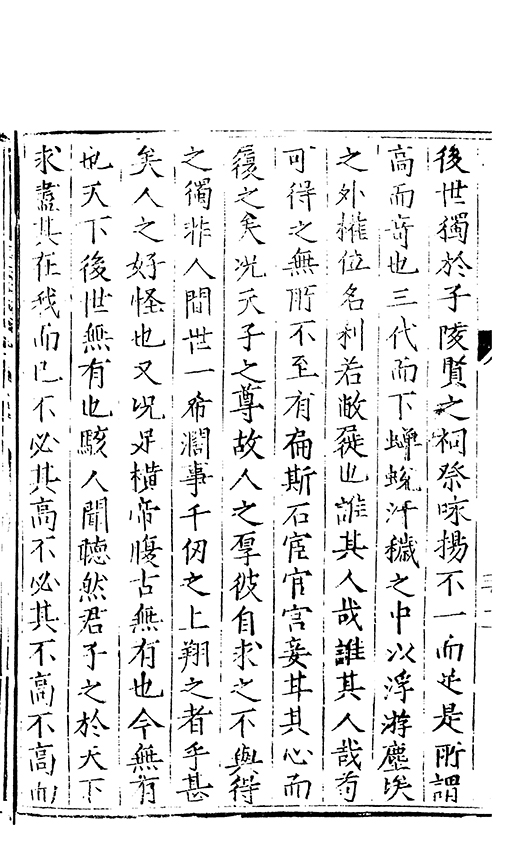 後世獨於子陵賢之祠祭咏揚不一而足是所謂
高而奇也三代而下蟬蛻汙穢之中以浮游塵埃
之外權位名利若敝屣也誰其人哉誰其人哉苟
可得之無所不至有扁斯石宦官宫妾甘其心而
復之矣况天子之尊故人之厚彼自求之不與得
之獨非人間世一希濶事千仞之上翔之者乎甚
矣人之好怪也又况足橫帝腹古無有也今無有
也天下後世無有也駭人聞聽然君子之於天下
求盡其在我而已不必其高不必其不高不高而